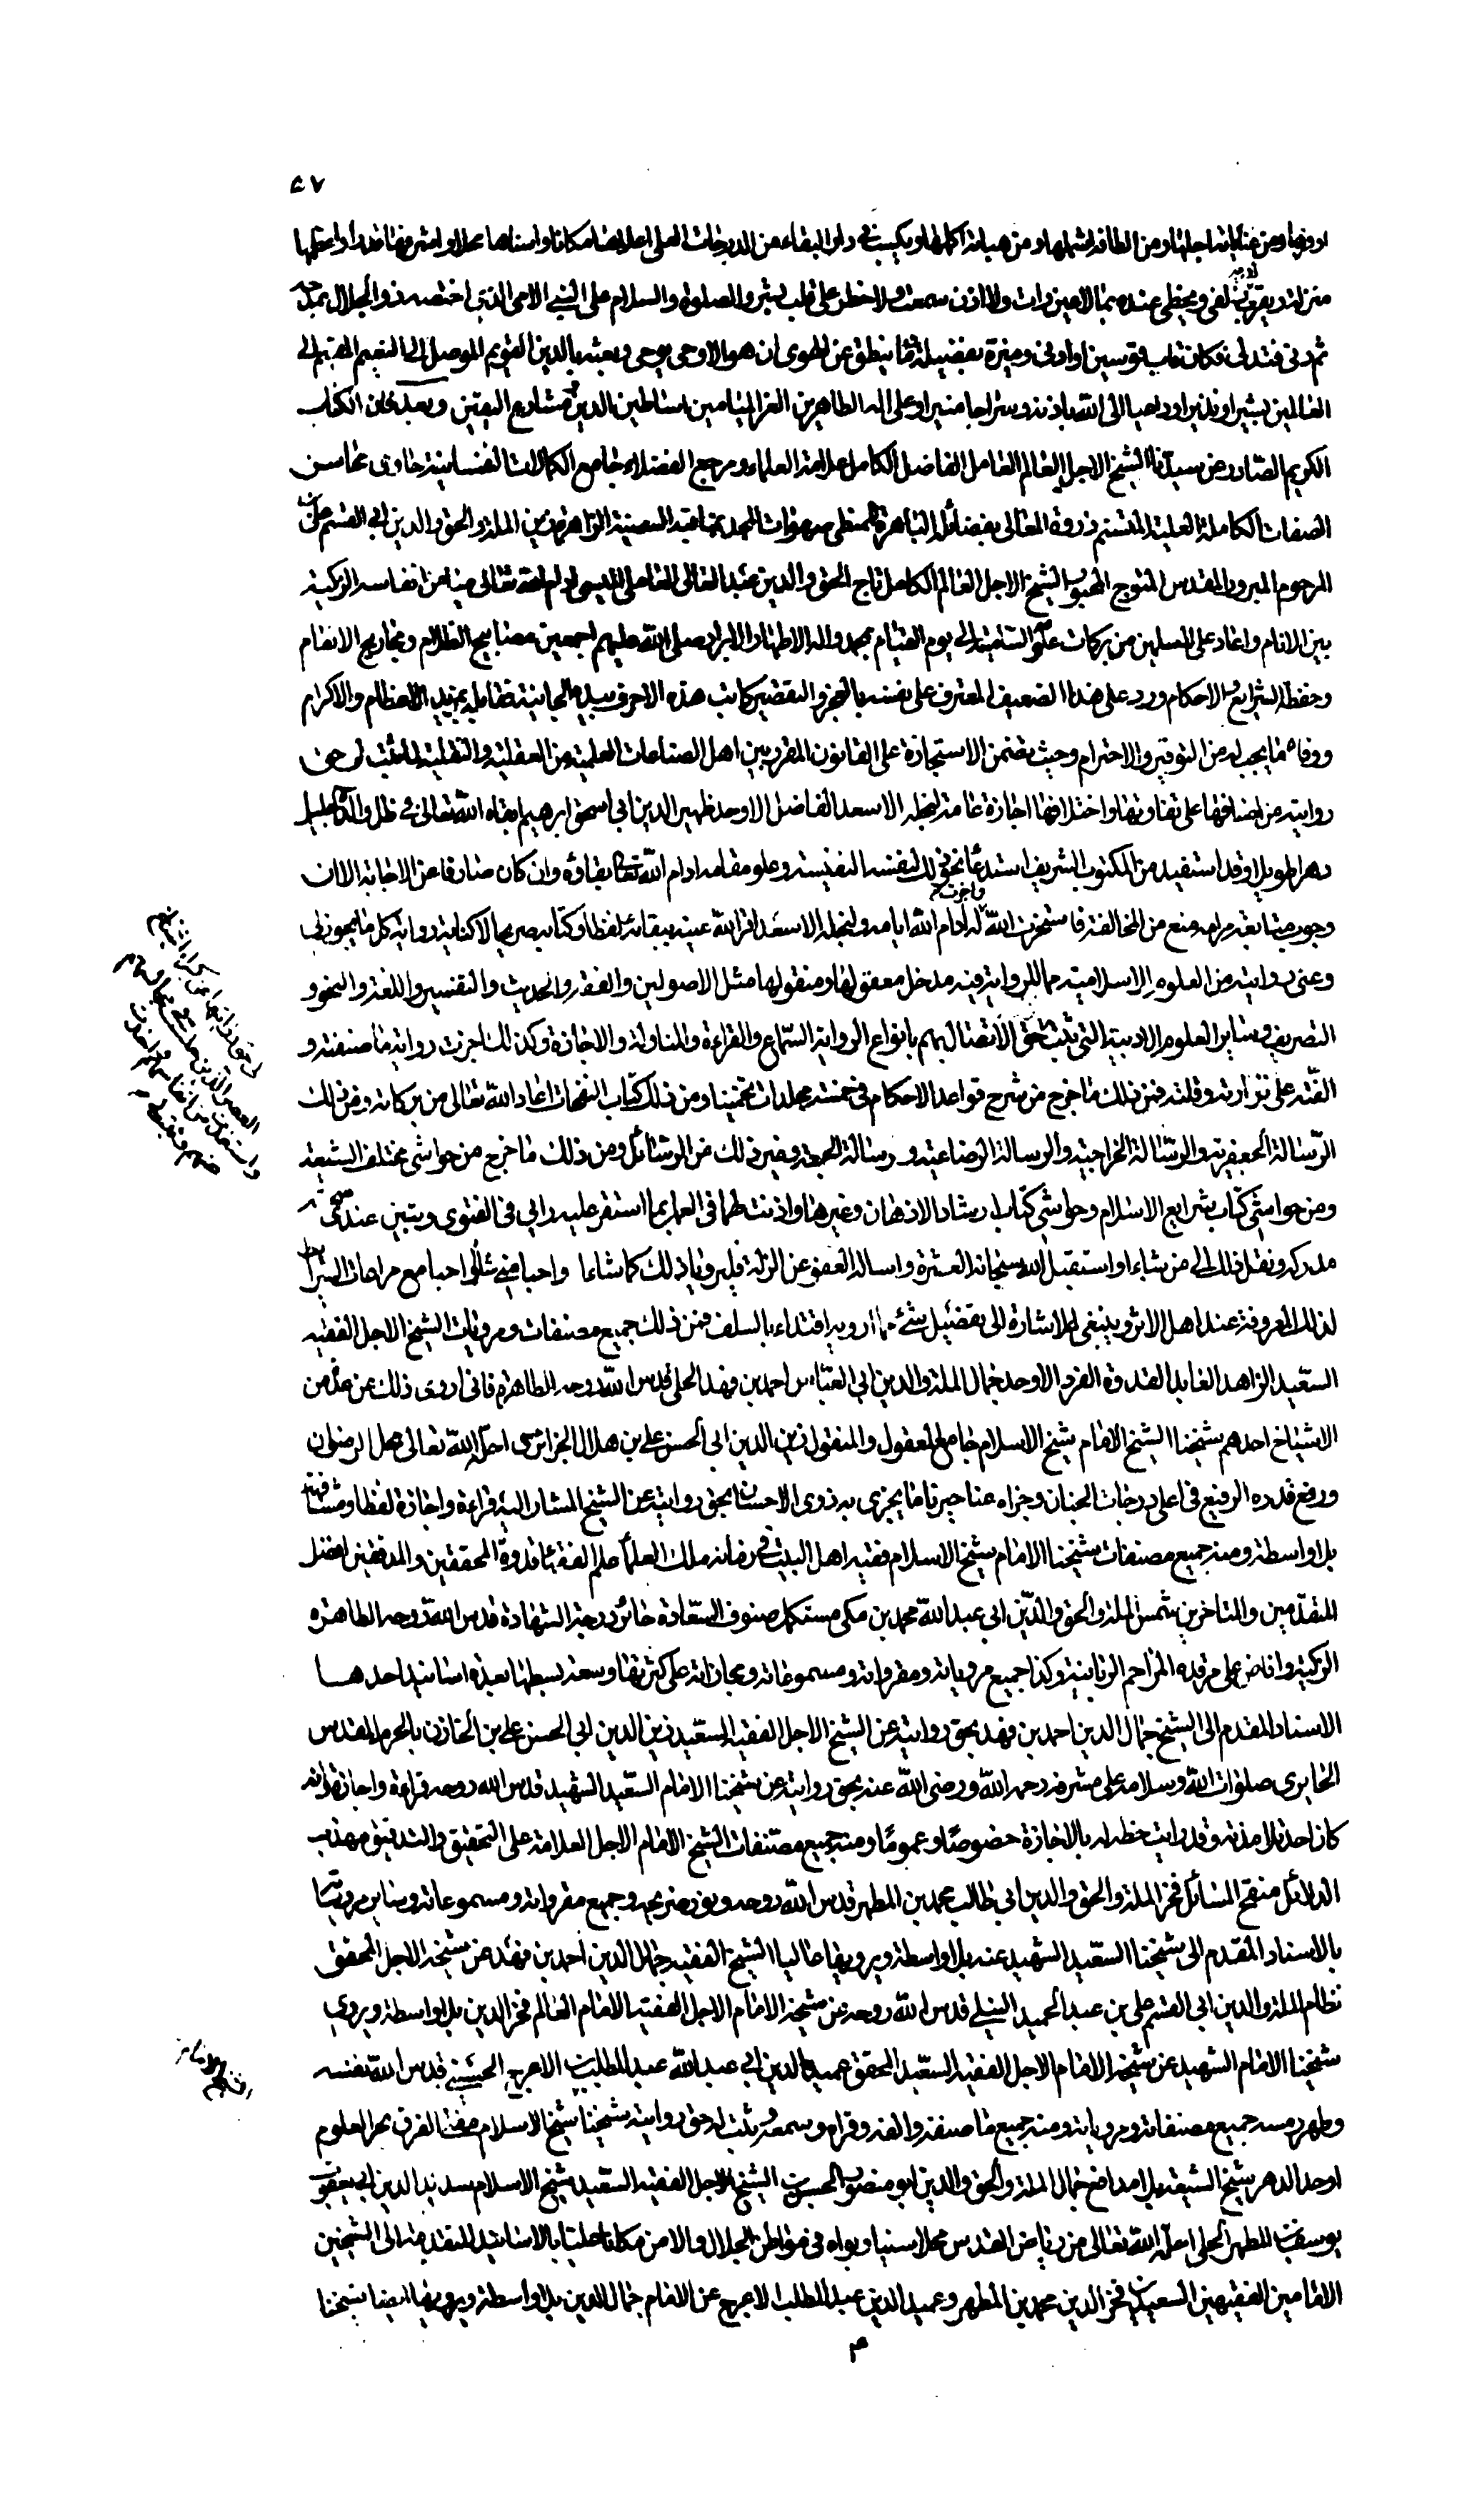 ٤٧
اوفرها ومن عناياته اجلها ومن الطافه اشملها ومن هباته اكملها ويكسب في دار البقاء من الدرجات العلى اعلاها مكانا واسناها محلا واشرفها قدرا واعظمها
منزلة ويقربه زلفى ويحظى عنده بما لا عين رات ولا اذن سمعت ولا خطر على قلب بشر والصلوة والسلام على النبي الامي الذي اختصه ذو الجلال بمدحه
ثم دنى فتدلى فكان قاب قوسين او ادنى وميزه بفضيلة وما ينطق عن الهوى ان هو الا وحي يوحى وبعثه بالدين القويم الموصل الى النعيم المقيم الى
العالمين بشيرا ونذيرا وداعيا الى الله باذنه وسراجا منيرا وعلى اله الطاهرين الغر الميامين اساطين الدين ومشارع اليقين وبعد فان الكتاب
الكريم الصادر عن سيدنا الشيخ الاجل العالم العامل الفاضل الكامل علامة العلماء ومرجع الفضلاء جامع الكمالات النفسانية حاوي محاسن
الصفات الكاملة العلية المتسنم ذروة المعالي بفضائله الباهرة الممتطي صهوات المجد بمناقبه السنية الزاهرة زين الملة والحق والدين ابي القسم علي بن
المرحوم المبرور المقدس المتوج المحبور الشيخ الاجل العالم الكامل تاج الحق والدين عبد العالي العاملي الميسي ادام الله تعالى ميامن انفاسه الزكية
بين الانام واعاد على المسلمين من بركات علومه السامية الى يوم القيام بمحمد واله الاطهار الابرار صلى الله عليهم اجمعين مصابيح الظلام ومجاريح الانعام
وحفظة الشرايع والاحكام ورد على هذا الضعيف المعترف على نفسه بالعجز والتقصير كاتب هذه الاحرف بيده الجانية فقابله بمزيد الاعظام والاكرام
ووفاه ما يجب له من التوقير والاحترام وحيث تضمن الاستجازة على القانون المقرر بين اهل الصناعات العلمية من العقلية والنقلية لما ثبت لي حق
روايته من اصنافها على تفاوتها واختلافها اجازة عامة لنجله الاسعد الفاضل الاوحد ظهير الدين ابي اسحق ابرهيم ابقاه الله تعالى في ظل والده الجليل
دهرا طويلا وقد استفيد من المكتوب الشريف استدعاء نحو ذلك لنفسه النفيسة وعلو مقامه ادام الله تعالى بقاءه وان كان صارفا عن الاجابة الا ان
وجوب متابعة مرامه منع من المخالفة فاستخرت الله واجزت له ادام الله ايامه ولنجله الاسعد اقر الله عينيه ببقائه لفظا وكتابة صريحا لا كناية رواية كل ما يجوز لي
وعني روايته من العلوم الاسلامية مما للرواية فيه مدخل معقولها ومنقولها مثل الاصولين والفقه والحديث والتفسير واللغة والنحو و
التصريف وساير العلوم الادبية التي ثبت حق الاتصال بهم بانواع الرواية السماع والقراءة والمناولة والاجازة وكذلك اجزت رواية ما صنفته و
الفته على نزارته وقلته فمن ذلك ما خرج من شرح قواعد الاحكام في خمسة مجلدات تخمينا ومن ذلك كتاب النفحات اعاد الله تعالى من بركاته ومن ذلك
الرسالة الجعفرية والرسالة الخراجية والرسالة الرضاعية ورسالة الجمعة وغير ذلك من الرسائل ومن ذلك ما خرج من حواشي مختلف الشيعة
ومن حواشي كتاب شرايع الاسلام وحواشي كتاب ارشاد الاذهان وغيرها واذنت لهما في العمل بما استقر عليه رايي في الفتوى وتبين عندهما صحة
مدركه ونقل ذلك الى من شاءا واستقيل الله سبحانه العثرة واساله العفو عن الزلة فليرويا ذلك كما شاءا واحبا متى شاءا واحبا مع مراعات الشرائط
لذلك المعروفة عند اهل الاثر وينبغي الاشارة الى تفصيل شئ مما ارويه اقتداء بالسلف فمن ذلك جميع مصنفات ومرويات الشيخ الاجل الفقيه
السعيد الزاهد العابد القدوة الفرد الاوحد جمال الملة والدين ابي العباس احمد بن فهد الحلي قدس الله روحه الطاهرة فاني اروي ذلك عن عدة من
الاشياخ احدهم شيخنا الشيخ الامام شيخ الاسلام جامع المعقول والمنقول زين الدين ابي الحسن علي بن هلال الجزائري احله الله تعالى محل الرضوان
ورفع قدره الرفيع في اعلى درجات الجنان وجزاه عنا خير ما يجزى به ذوي الاحسان بحق روايته عن الشيخ المشار اليه قراءة واجازة لفظا ومشافهة
بلا واسطة ومنه جميع مصنفات شيخنا الامام شيخ الاسلام فقيه اهل البيت في زمانه ملك العلماء علم الفقهاء قدوة المحققين والمدققين افضل
المتقدمين والمتاخرين شمس الملة والحق والدين ابي عبد الله محمد بن مكي مستكمل صنوف السعادة حائز درجة الشهادة قدس الله روحه الطاهرة
الزكية وافاض على مرقده المراحم الربانية وكذا جميع مروياته ومقرواته ومسموعاته ومجازاته على كثرتها وسعة بسطها بعدة اسانيد احدها
الاسناد المقدم الى الشيخ جمال الدين احمد بن فهد بحق روايته عن الشيخ الاجل الفقيه السعيد زين الدين ابي الحسن علي بن الخازن بالحرم المقدس
الحايري صلوات الله وسلامه على مشرفه رحمه الله ورضي الله عنه بحق روايته عن شيخنا الامام السعيد الشهيد قدس الله روحه قراءة واجازة فانه
كان احد تلامذته وقد رايت خطه له بالاجازة خصوصا وعموما ومنه جميع مصنفات الشيخ الامام الاجل العلامة على التحقيق والتدقيق مهذب
الدلائل منقح المسائل فخر الملة والحق والدين ابي طالب محمد بن المطهر قدس الله روحه ونور ضريحه وجميع مقرواته ومسموعاته وساير مروياته
بالاسناد المقدم الى شيخنا السعيد الشهيد عنه بلا واسطة ويرويها عاليا الشيخ الفقيه جمال الدين احمد بن فهد عن شيخه الاجل المحقق
نظام الملة والدين ابي القسم علي بن عبد الحميد النيلي قدس الله روحه عن شيخه الامام الاجل الفقيه الامام العالم فخر الدين بلا واسطة ويروي
شيخنا الامام الشهيد عن شيخه الامام الاجل الفقيه السعيد المحقق عميد الدين ابي عبد الله عبد المطلب بن الاعرج الحسيني قدس الله نفسه
وطهر رمسه جميع مصنفاته ومروياته ومنه جميع ما صنفه والفه وقراه وسمعه وثبت له حق روايته شيخنا شيخ الاسلام مفتي الفرق بحر العلوم
اوحد الدهر شيخ الشيعة بلا مدافع جمال الملة والحق والدين ابو منصور الحسن بن الشيخ الاجل الفقيه السعيد شيخ الاسلام سديد الدين ابي يعقوب
يوسف بن المطهر الحلي احله الله تعالى من رياض القدس محلا سنيا وبواه في مواطن الجلال والامن مكانا عليا بالاسانيد المتقدمة الى الشيخين
الامامين الفقيهين السعيدين فخر الدين محمد بن المطهر وعميد الدين عبد المطلب الاعرج عن الامام جمال الدين بلا واسطة ويرويها ايضا شيخنا